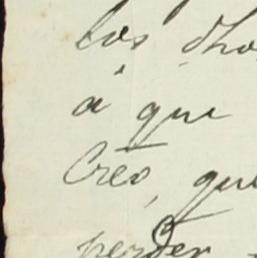 los dho
á que
Creo, que
perder